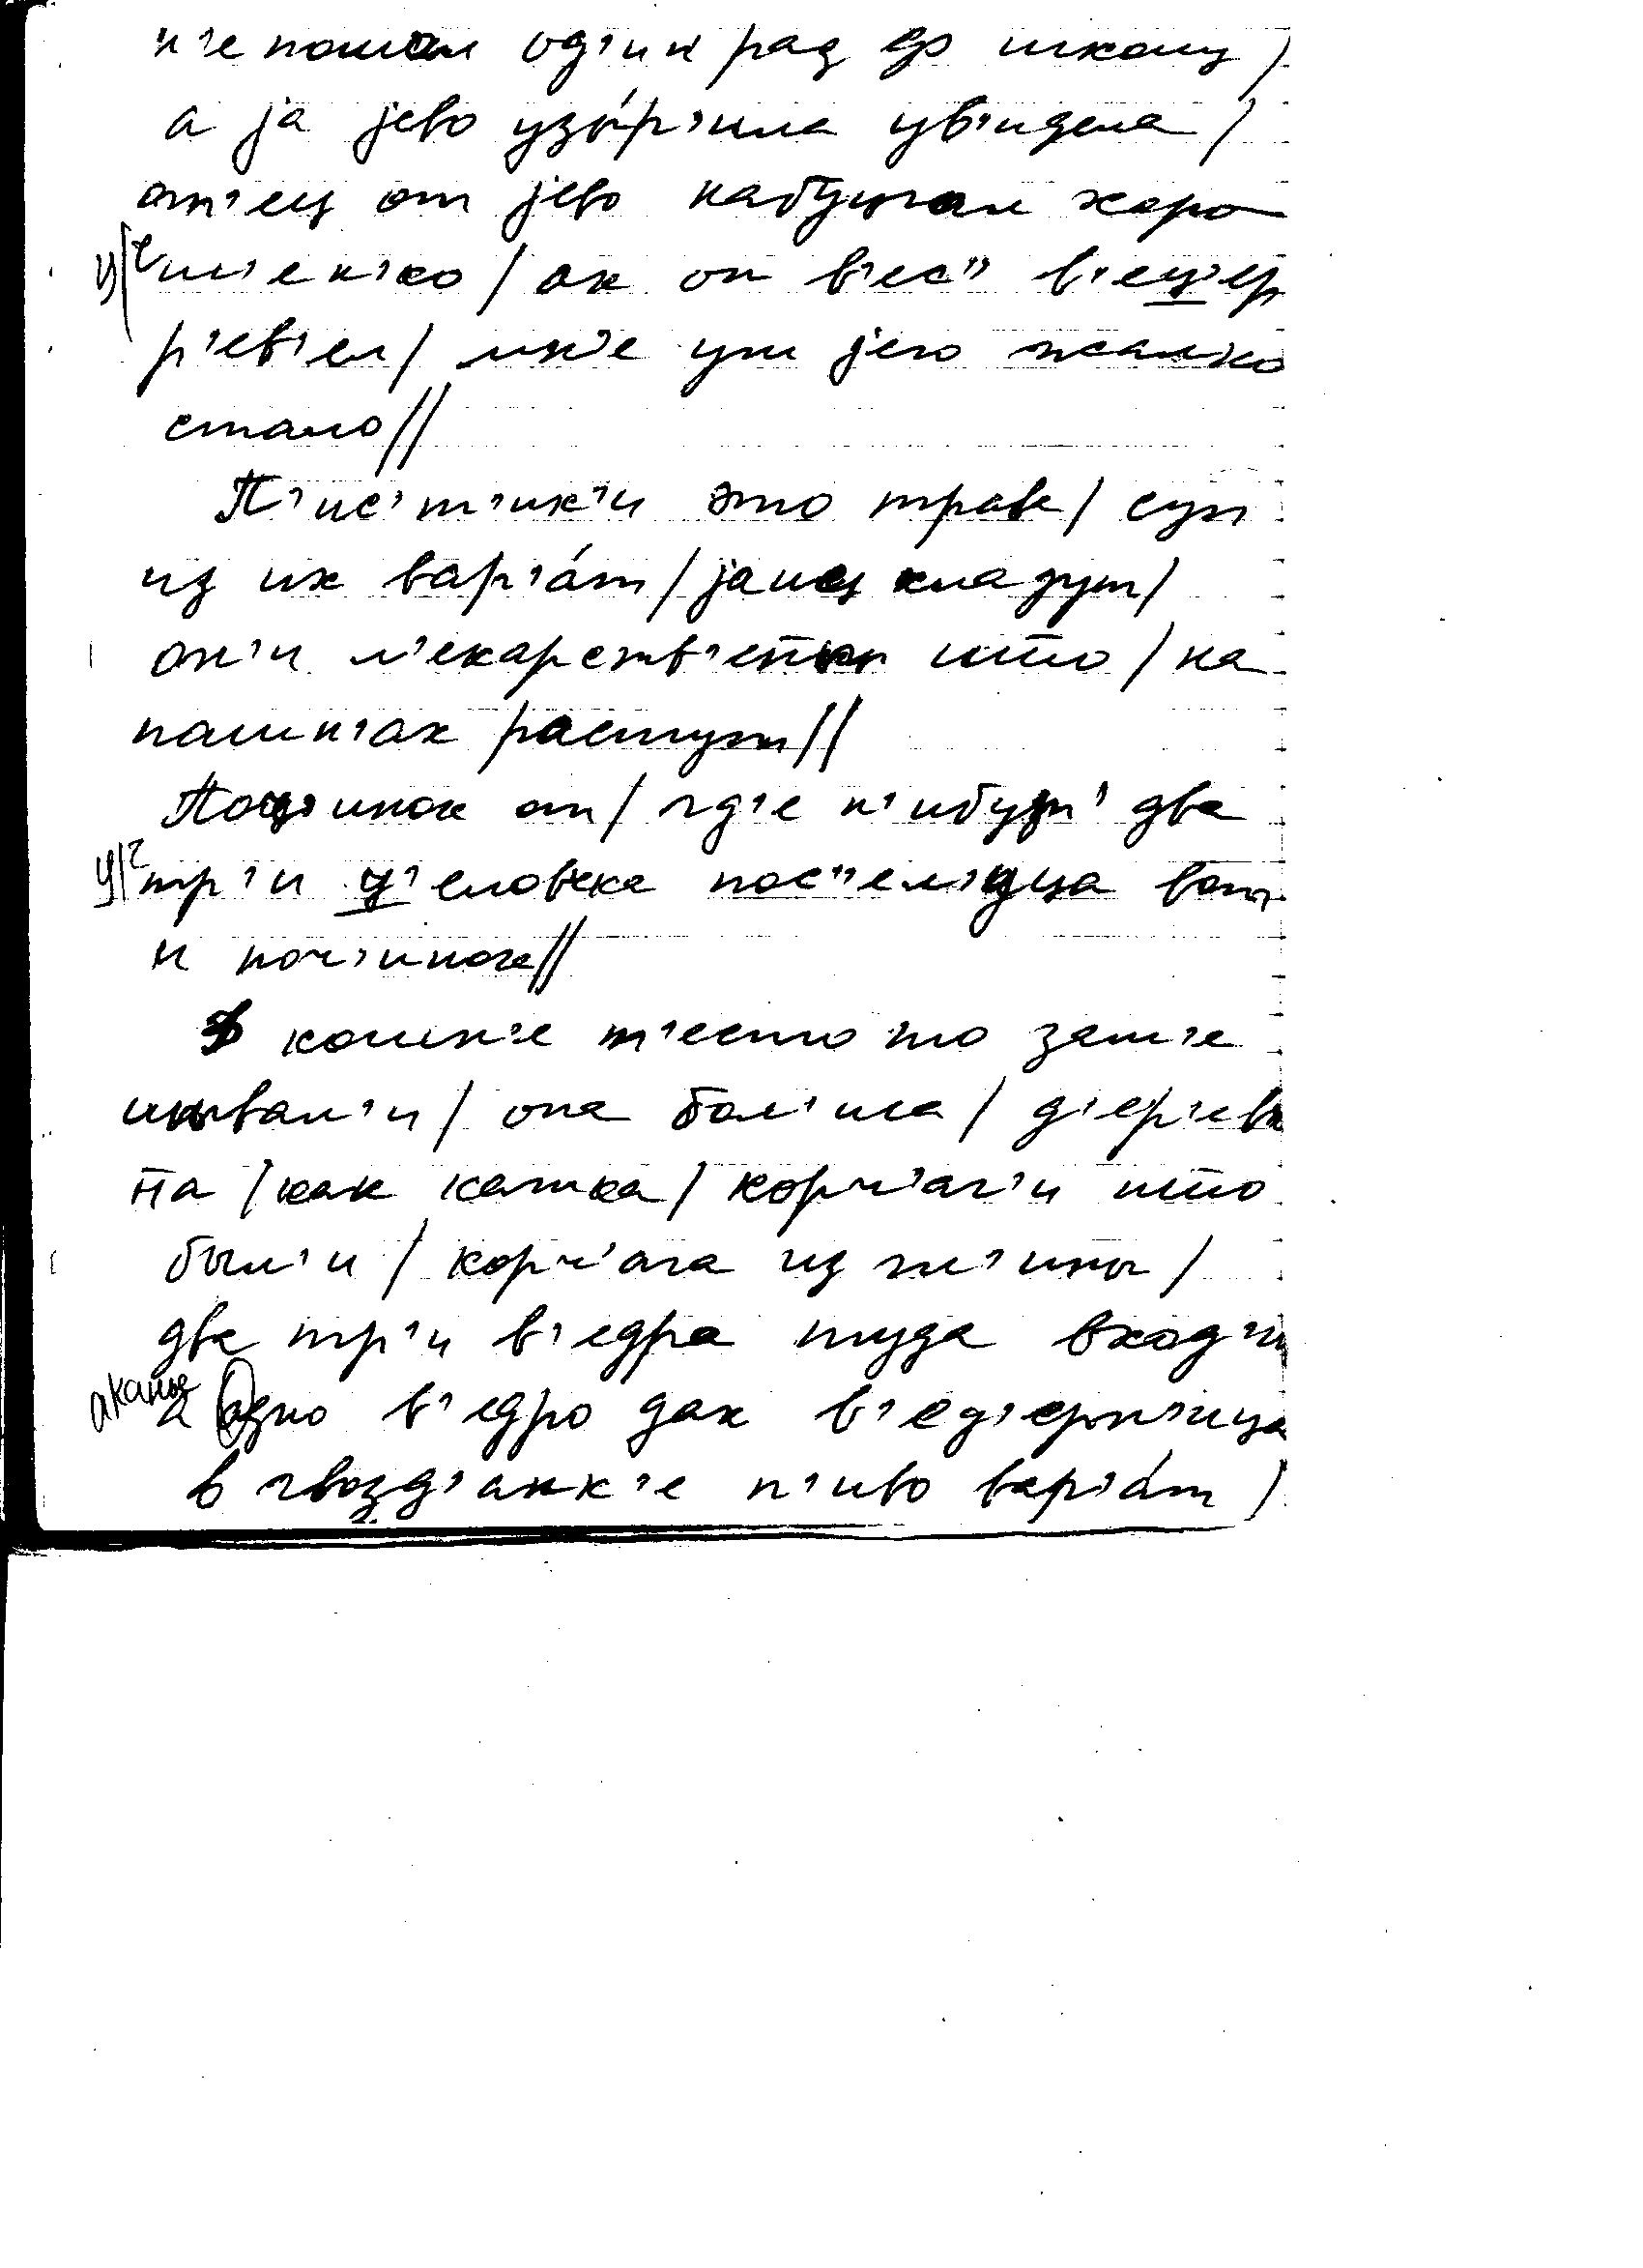 н'е пошол од'ин раз до школы /
а jа jево узы́р'ила ув'идела /
от'ец от jево набухал хоро
ц/ч ш'ен'ко / ак он в'ес" в'ец'ер
р'ев'ел / мн'е уш jего жалко
стало //
П'ис'т'ик'и это трава / суп
из их вар'а́т / jаиц кладут /
он'и л'екарств'ен̄ы што / на
пашн'ах растут //
Поц'инок от / гд'е н'ибут' два
ц/ч тр'и ц'еловека пос"ел'ица вот
и поч'инок //
В кошн'е т'есто то зам'е
шывал'и / она бол'ша / д'ер'евя
н̄а / как катка / корч'аг'и што
был'и / корч'ага из гл'ины /
два тр'и в'едра туда вход'ит
аканье а одно в'едро дак в'ед'ерн'ица
в гвозд'анк'е п'иво вар'а́т /